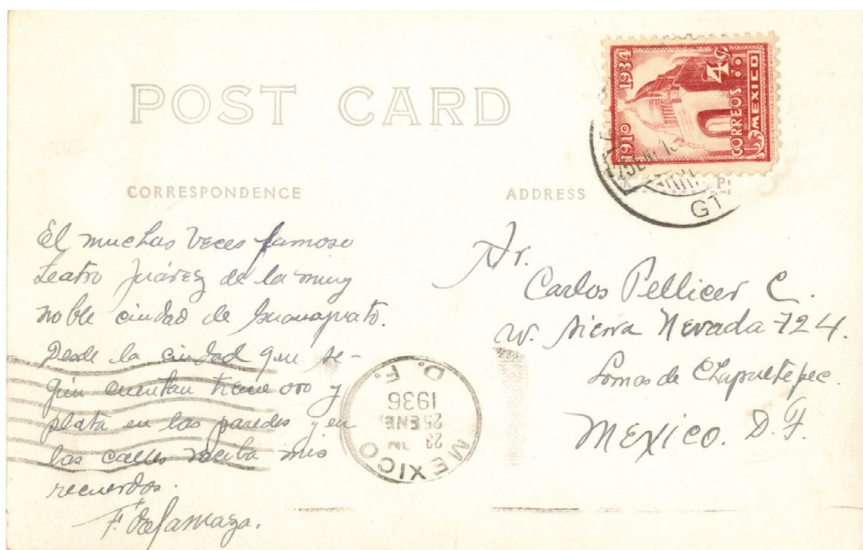 POST CARD
CORRESPONDENCE
ADDRESS
1910 1934
4c
CORREOS
MEXICO
GT
El muchas veces famoso
teatro Juárez de la muy
noble ciudad de Guanajuato.
Desde la ciudad que se-
gún cuentan tiene oro y
plata en las paredes y en
las calles reciba mis
recuerdos.
Sr.
Carlos Pellicer C.
W. Sierra Nevada 724.
Lomas de Chapultepec.
MEXICO. D.F.
MEXICO
25 ENE
1936
D. F.